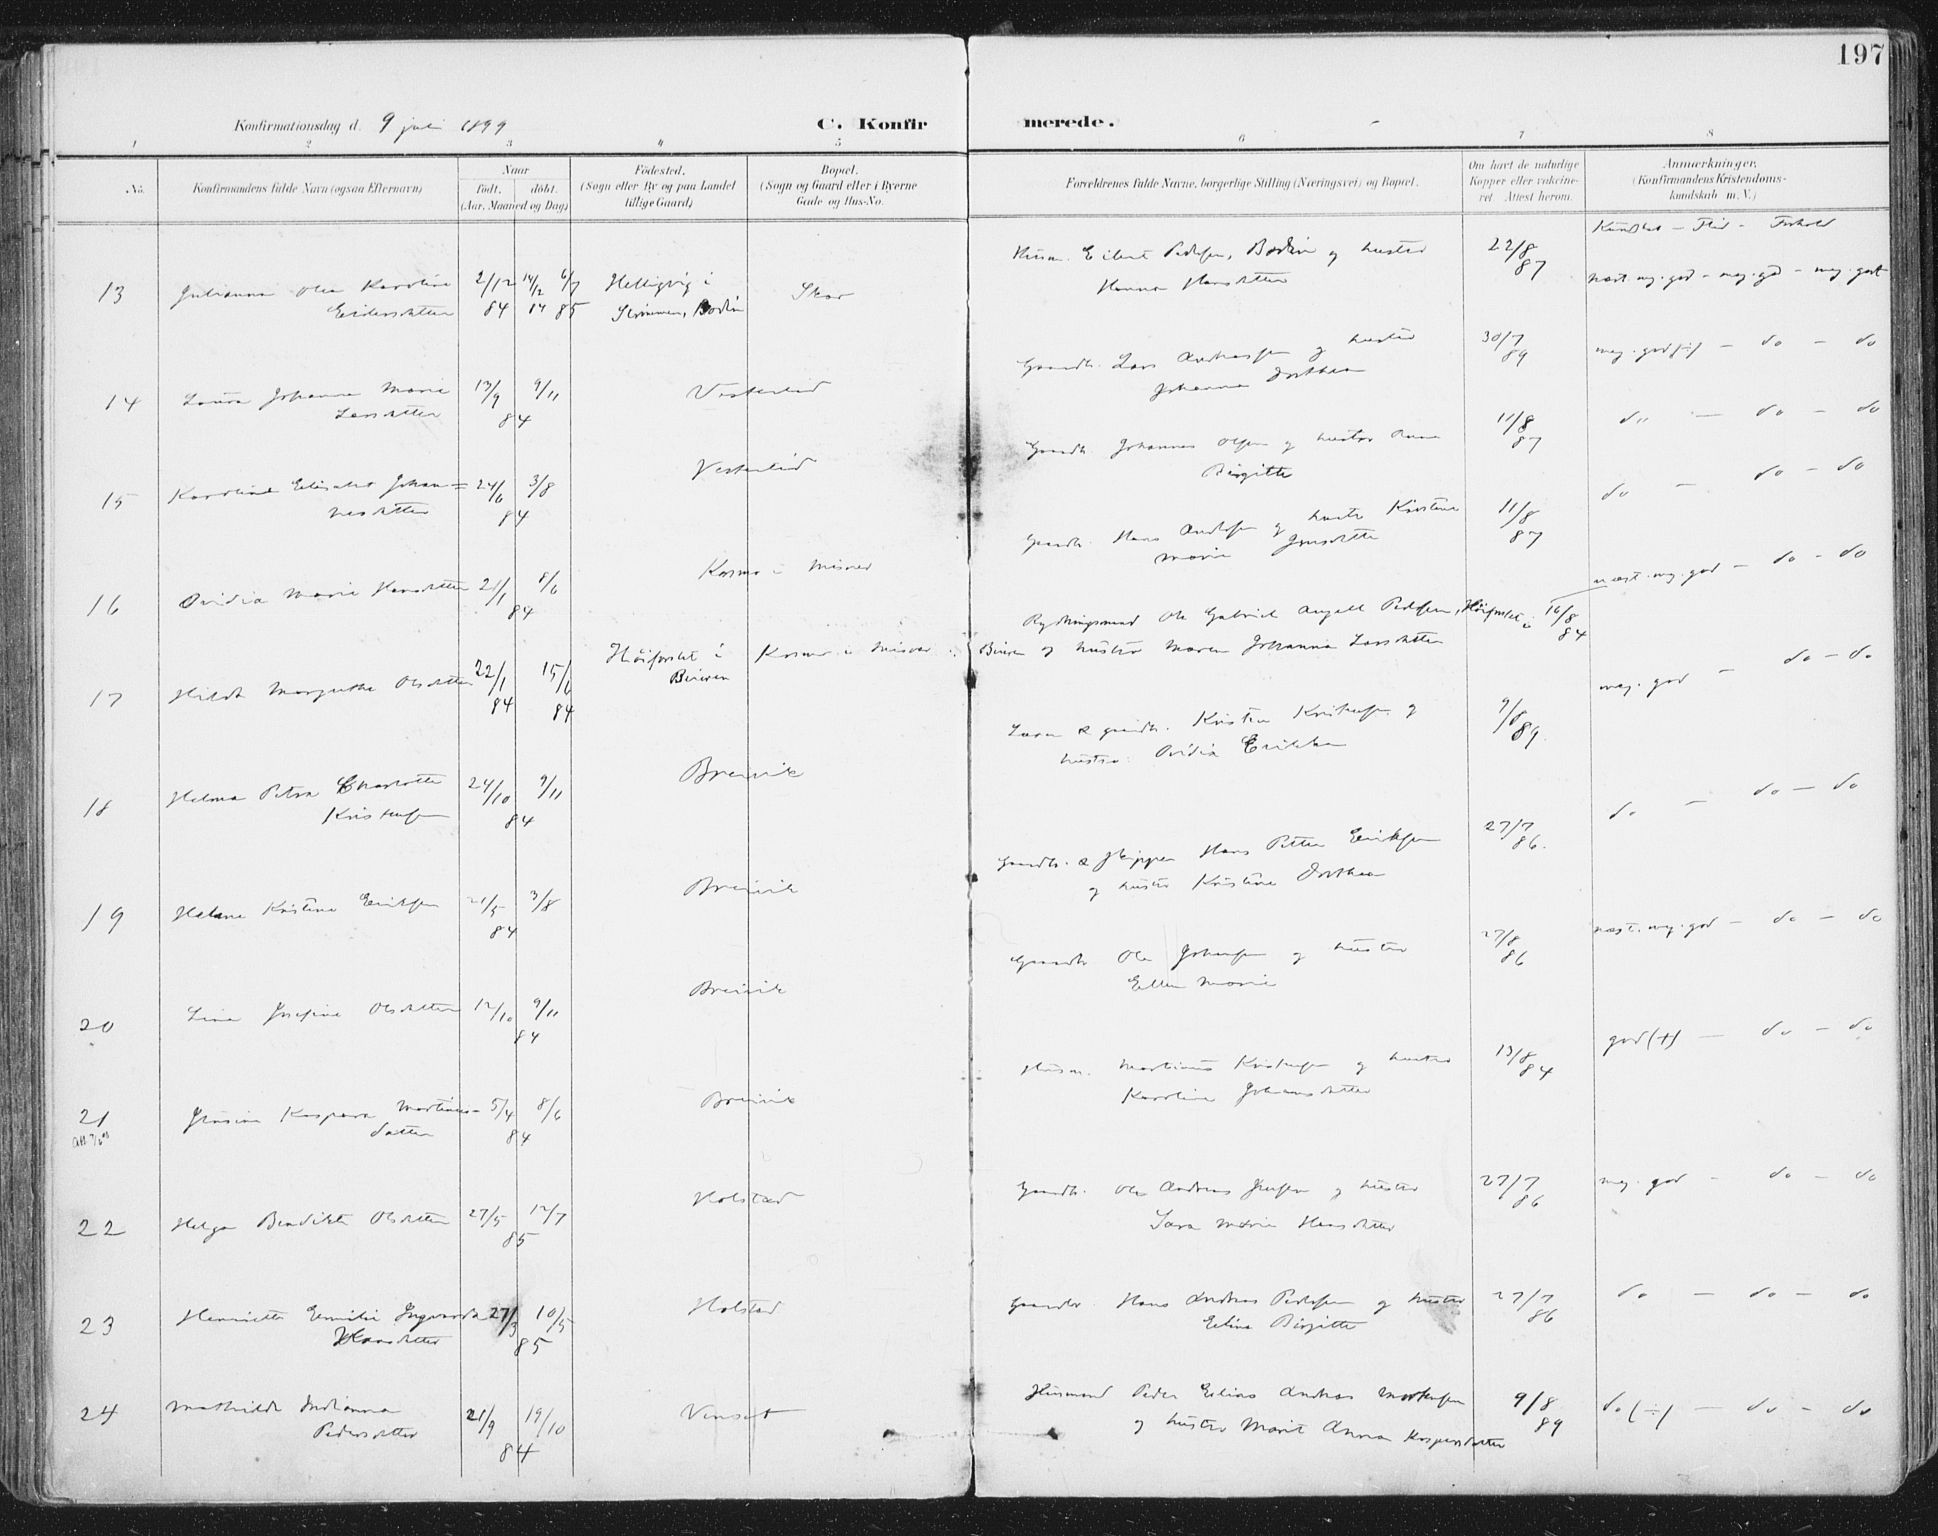 197
Konfirmationsdag d. 9 juli 1899
C. Konfirmerede.
1 2 3 4 5 6 7 8
No. Konfirmandens fulde Navn (ogsaa Efternavn)
Naar
födt. döbt.
(Aar, Maaned og Dag)
Födested.
(Sogn eller By og paa Landet
tillige Gaard)
Bopæl.
(Sogn og Gaard eller i Byerne
Gade og Hus-No.
Forældrenes fulde Navne, borgerlige Stilling (Næringsvei) og Bopæl.
Om havt de naturlige
Kopper eller vakcine-
ret. Attest herom.
Anmærkninger.
(Konfirmandens Kristendoms-
kundskab m. V.)
Kundskab - Flid - Forhold
13 Julianna Olea Karoline
Eilersdatter
2/12 84 14/12 84 6/7 85
Helligvig i
Strömmen, Bodin
Skar
Husm. Eilert Pedersen, Bodin og hustru
Hanna Hansdatter
22/8 87
næst. mg. god - meg. god - meg. godt
14 Laura Johanna Marie
Larsdatter
13/9 9/11 84
Vesterlid
Gaardb. Lars Andreassen og hustru
Johanna Dorthea
30/7 89
meg. god (÷) - do - do
15 Karoline Elisabet Johan=
nesdatter
24/6 3/8 84
Vesterlid
Gaardb. Johannes Olsen og hustru Anna
Birgitte
11/8 87
do - do - do
16 Ovidia Marie Hansdatter
21/1 8/6 84
Kosmo i Misvær
Gaardb. Hans Andersen og hustru Kristine
Marie Jensdatter
11/8 87
do - do - do
17 Hilda Margrethe Olsdatter
22/1 84 15/6 84
Höiforslet i
Beieren
Kosmo i Misvær
Rydningsmand Ole Gabriel Angell Pedersen, Höiforslet i
Beieren og hustru Maren Johanna Larsdatter
16/8 84
næst. mg. god - do - do
18 Helma Petra Charlotte
Kristensen
24/10 9/11 84
Breivik
gaardb. Kristen Kristensen og
hustru Ovidia Erikka
9/8 89.
meg. god - do - do
19 Helene Kristine Eriksen
21/5 3/8 84
Breivik
Gaardb. & skipper Hans Petter Eriksen
og hustru Kristine Dorthea
27/7 86.
do - do - do
20 Lina Josefine Olsdatter
12/10 9/11 84
Breivik
Gaardb. Ole Johansen og hustru
Ellen Marie
27/8 86
næst. mg. god - do - do
21 Jensine Kaspara Martinus-
datter
5/4 8/6 84
Breivik
Husm. Martinus Kristensen og hustru
Karoline Johansdatter
13/8 84
god (+) - do - do
22 Helga Bendikte Olsdatter
27/5 12/7 85
Holstad
Gaardb. Ole Andreas Jensen og hustru
Sara Marie Hansdatter
27/7 86
meg. god - do - do
23 Henriette Emilie Ingvarda
Hansdatter
27/3 10/5 85
Holstad
Gaardbr. Hans Andreas Pedersen og hustru
Eline Birgitte
27/7 86
do - do - do
24 Mathilde Indianna
Pedersdatter
21/9 19/10 84
Venset
Husmand Peder Elias Andreas Mortensen
og hustru Marit Anna Kaspersdatter
9/8 89
do (÷) - do - do